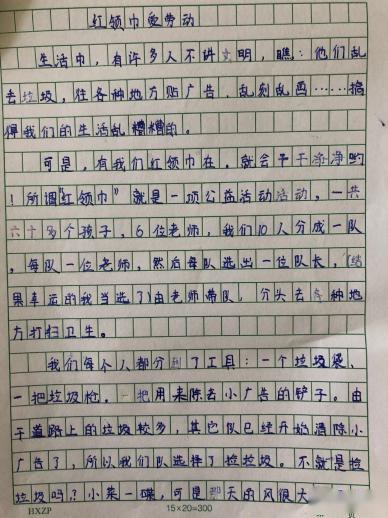 红领巾爱劳动
生活中，有许多人不讲文明，瞧：他们乱
丢垃圾，往各种地方贴广告，乱刻乱画……搞
得我们的生活乱糟糟的。
可是，有我们红领巾在，就会干干净净哟
！所谓"红领巾"就是一项公益活动活动，一共
六十多个孩子，6位老师，我们10人分成一队
，每队一位老师，然后每队选出一位队长，（结
果幸运的我当选了）由老师带队，分头去各种地
方打扫卫生。
我们每个人都分到了工具：一个垃圾袋、
一把垃圾枪，一把用来除去小广告的铲子。由
于道路上的垃圾较多，其它队已经开始清除小
广告了，所以我们队选择了捡垃圾。不就是捡
垃圾吗？小菜一碟，可是那天的风很大
HXZP 15×20=300 页